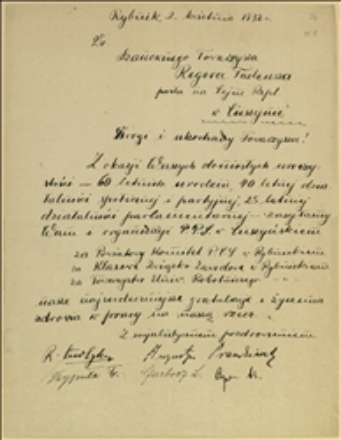 Rybnik, 2. kwietnia 1932 r.
Do
Szanownego Towarzysza
Regera Tadeusza
posła na Sejm Rzpl.
w Cieszynie
Drogi i ukochany Towarzyszu!
Z okazji Waszych doniosłych uroczy-
stości — 60 letnich urodzin, 40 letniej dzia-
łalności społecznej i partyjnej, 25 letniej
działalności parlamentarnej — zasyłamy
Wam i organizacji P.P.S. w Cieszyńskiem
za Powiatowy Komitet P.P.S. w Rybnickiem
za Klasowe Związki Zawodowe w Rybnickiem
za Towarzystwo Uniw. Robotniczego
nasze najserdeczniejsze gratulacje i życzenia
zdrowia w pracy na naszą rzecz.
Z socjalistycznem pozdrowieniem